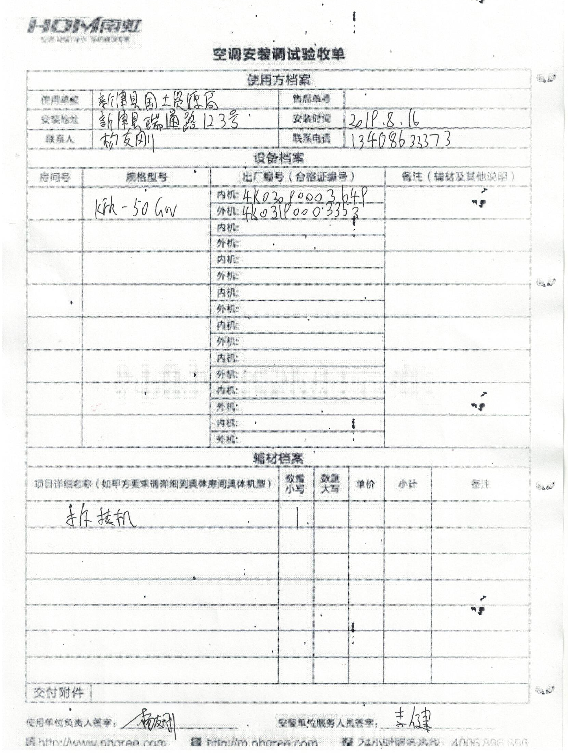 HOM南虹
空调安装调试验收单
使用方档案
使用单位 新津县国土资源局 售后单号
安装地址 新津县瑞通路123号 安装时间 2019.8.16
联系人 联系电话 13408633373
设备档案
房间号 规格型号 出厂编号（合格证编号） 备注（辅材及其他说明）
KFR-50GW 内机:
外机:
内机:
外机:
内机:
外机:
内机:
外机:
内机:
外机:
内机:
外机:
内机:
外机:
内机:
外机:
辅材档案
项目详细名称（如甲方要求请详细到具体房间具体机型） 数量小写 数量大写 单价 小计 备注
挂机 1
交付附件
使用单位负责人签字： 安装单位服务人员签字：
http://www.nhgree.com http://m.nhgree.com 24小时服务热线：